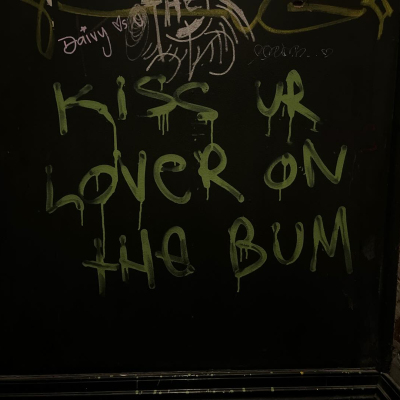 THE
Daivy ♡s
KiSS UR
LOVER ON
tHe BUM